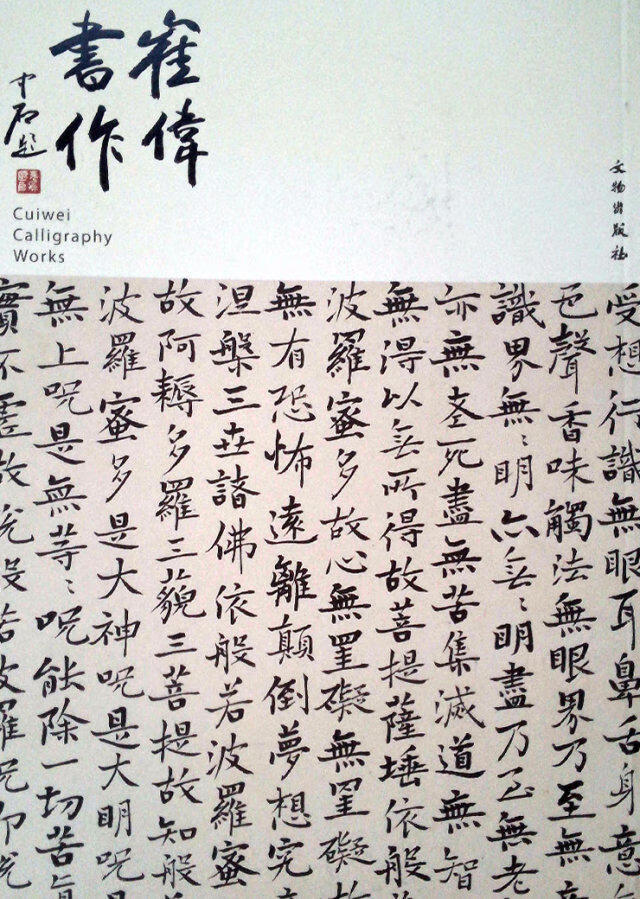 崔偉
書作
中石題
Cuiwei
Calligraphy
Works
文物出版社
受想行識無眼耳鼻舌身意
色聲香味觸法無眼界乃至無
識界無〻明亦無〻明盡乃至無老
亦無老死盡無苦集滅道無智
無得以無所得故菩提薩埵依般
波羅蜜多故心無罣礙無罣礙故
無有恐怖遠離顛倒夢想究
涅槃三世諸佛依般若波羅蜜
故阿耨多羅三藐三菩提故知般
波羅蜜多是大神呪是大明呪是
無上呪是無等〻呪能除一切苦真
實不虛故說般若波羅呪即說